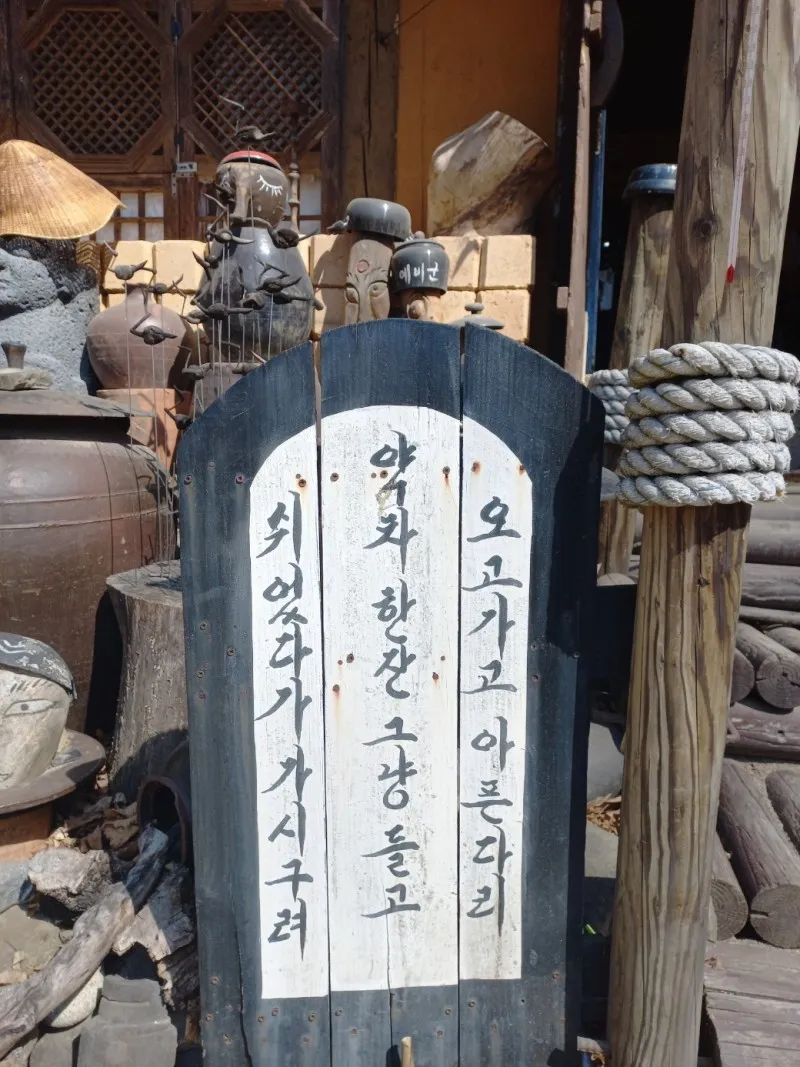 오고가고 아픈다리
약차 한잔 그냥 들고
쉬었다가 가시구려
에비군